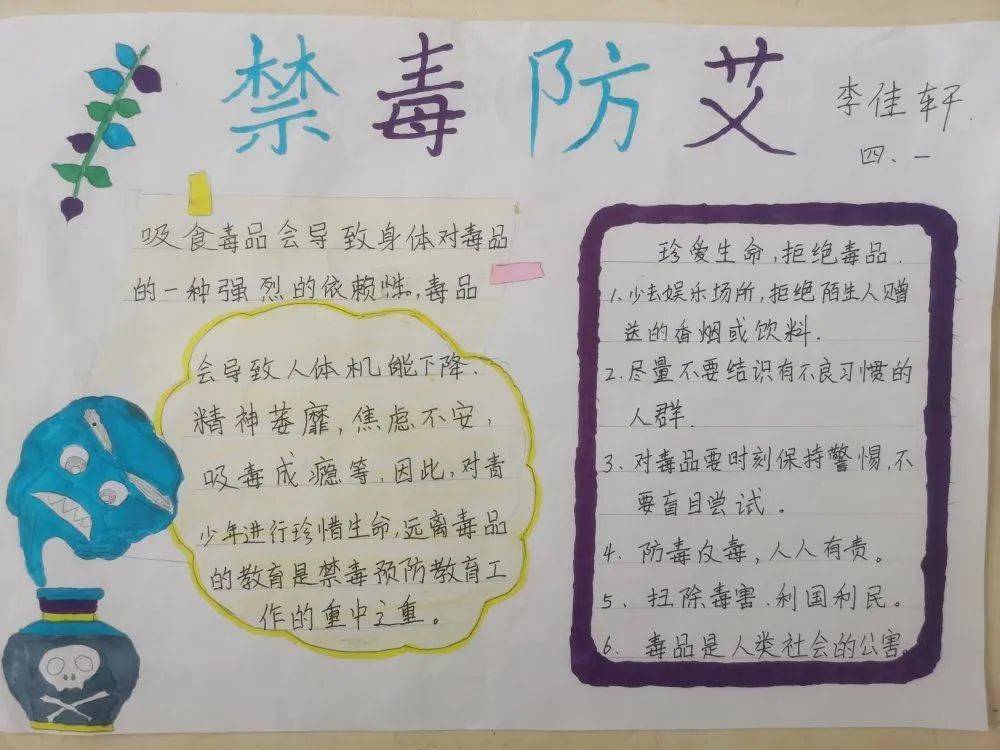 禁毒防艾
李佳轩.
四、一
吸食毒品会导致身体对毒品
的一种强烈的依赖性,毒品
会导致人体机能下降.
精神萎靡,焦虑不安,
吸毒成瘾等,因此,对青
少年进行珍惜生命,远离毒品
的教育是禁毒预防教育工
作的重中之重。
珍爱生命,拒绝毒品.
1.少去娱乐场所,拒绝陌生人赠
送的香烟或饮料.
2.尽量不要结识有不良习惯的
人群.
3.对毒品要时刻保持警惕,不
要盲目尝试。
4.防毒反毒,人人有责。
5、扫除毒害.利国利民。
6、毒品是人类社会的公害。